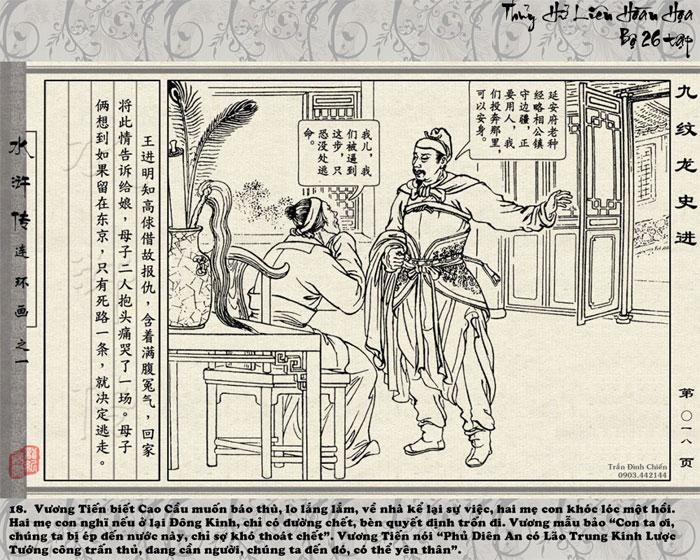 Thủy Hử Liên Hoàn Họa
Bộ 26 tập
九纹龙史进
延安府老种
经略相公镇
守边疆，正
要用人，我
们投奔那里，
可以安身。
我儿，我
们被逼到
这步，只
恐没处逃
命。
王进明知高俅借故报仇，含着满腹冤气，回家
将此情告诉给娘，母子二人抱头痛哭了一场。母子
俩想到如果留在东京，只有死路一条，就决定逃走。
水浒传连环画之一
第〇一八页
Trần Đình Chiến
0903.442144
18. Vương Tiến biết Cao Cầu muốn báo thù, lo lắng lắm, về nhà kể lại sự việc, hai mẹ con khóc lóc một hồi.
Hai mẹ con nghĩ nếu ở lại Đông Kinh, chỉ có đường chết, bèn quyết định trốn đi. Vương mẫu bảo “Con ta ơi,
chúng ta bị ép đến nước này, chỉ sợ khó thoát chết”. Vương Tiến nói “Phủ Diên An có Lão Trung Kinh Lược
Tướng công trấn thủ, đang cần người, chúng ta đến đó, có thể yên thân”.